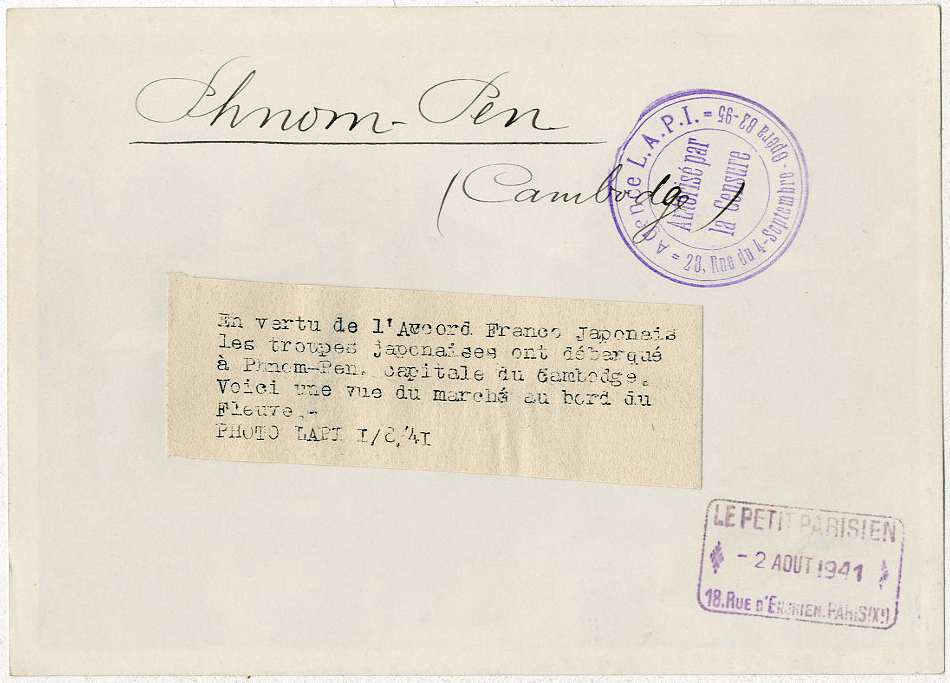 Phnom-Pen
(Cambodge)
Agence L.A.P.I. = Opéra 83-95
28, Rue du 4-Septembre
Autorisé par
la Censure
En vertu de l'Accord Franco Japonais
les troupes japonaises ont débarqué
à Phnom-Pen, capitale du Cambodge.
Voici une vue du marché au bord du
Fleuve.-
PHOTO LAPI I/8/41
LE PETIT PARISIEN
- 2 AOUT 1941
18. RUE D'ENGHIEN. PARIS (Xe)